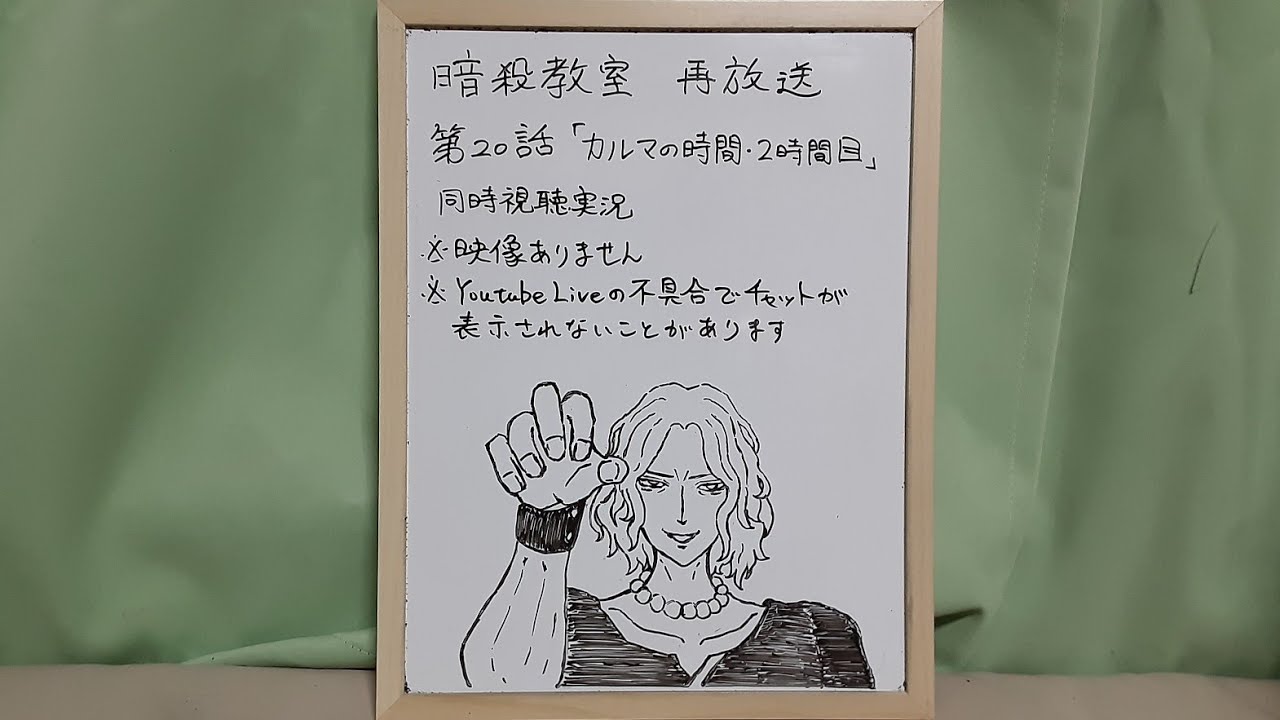 暗殺教室 再放送
第20話「カルマの時間・2時間目」
同時視聴実況
※映像ありません
※Youtube Liveの不具合でチャットが
表示されないことがあります